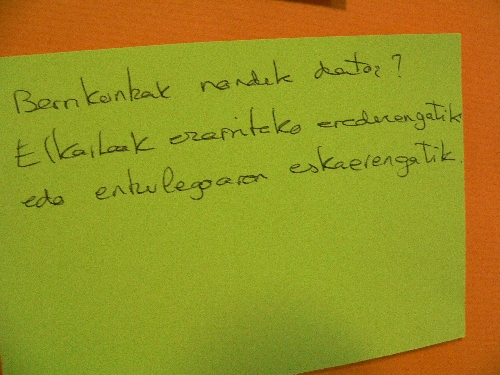 Berrikuntzak nondik datoz?
Elkarteak ezarritako ereduengatik
edo entzulegoaren eskaerengatik.